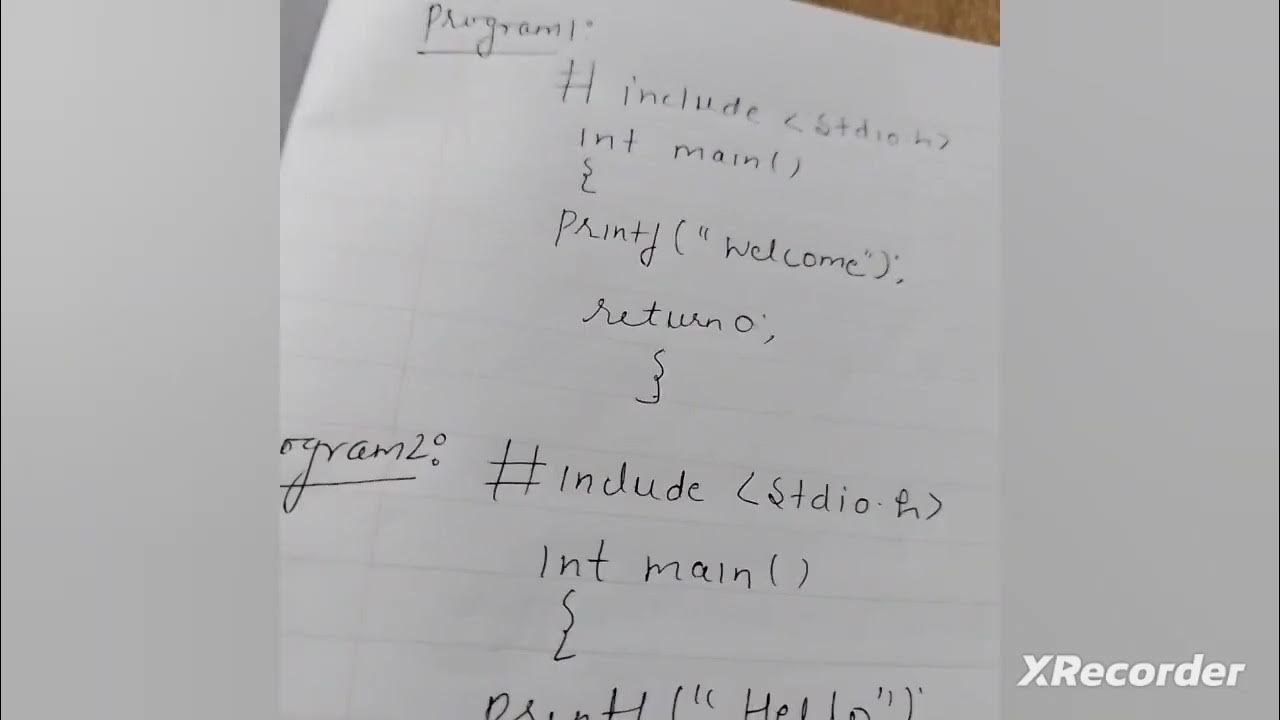 program1:
# include <stdio.h>
int main()
{
printf("Welcome");
return 0;
}
ogram2:
# include <stdio.h>
int main()
{
printf("Hello");
XRecorder